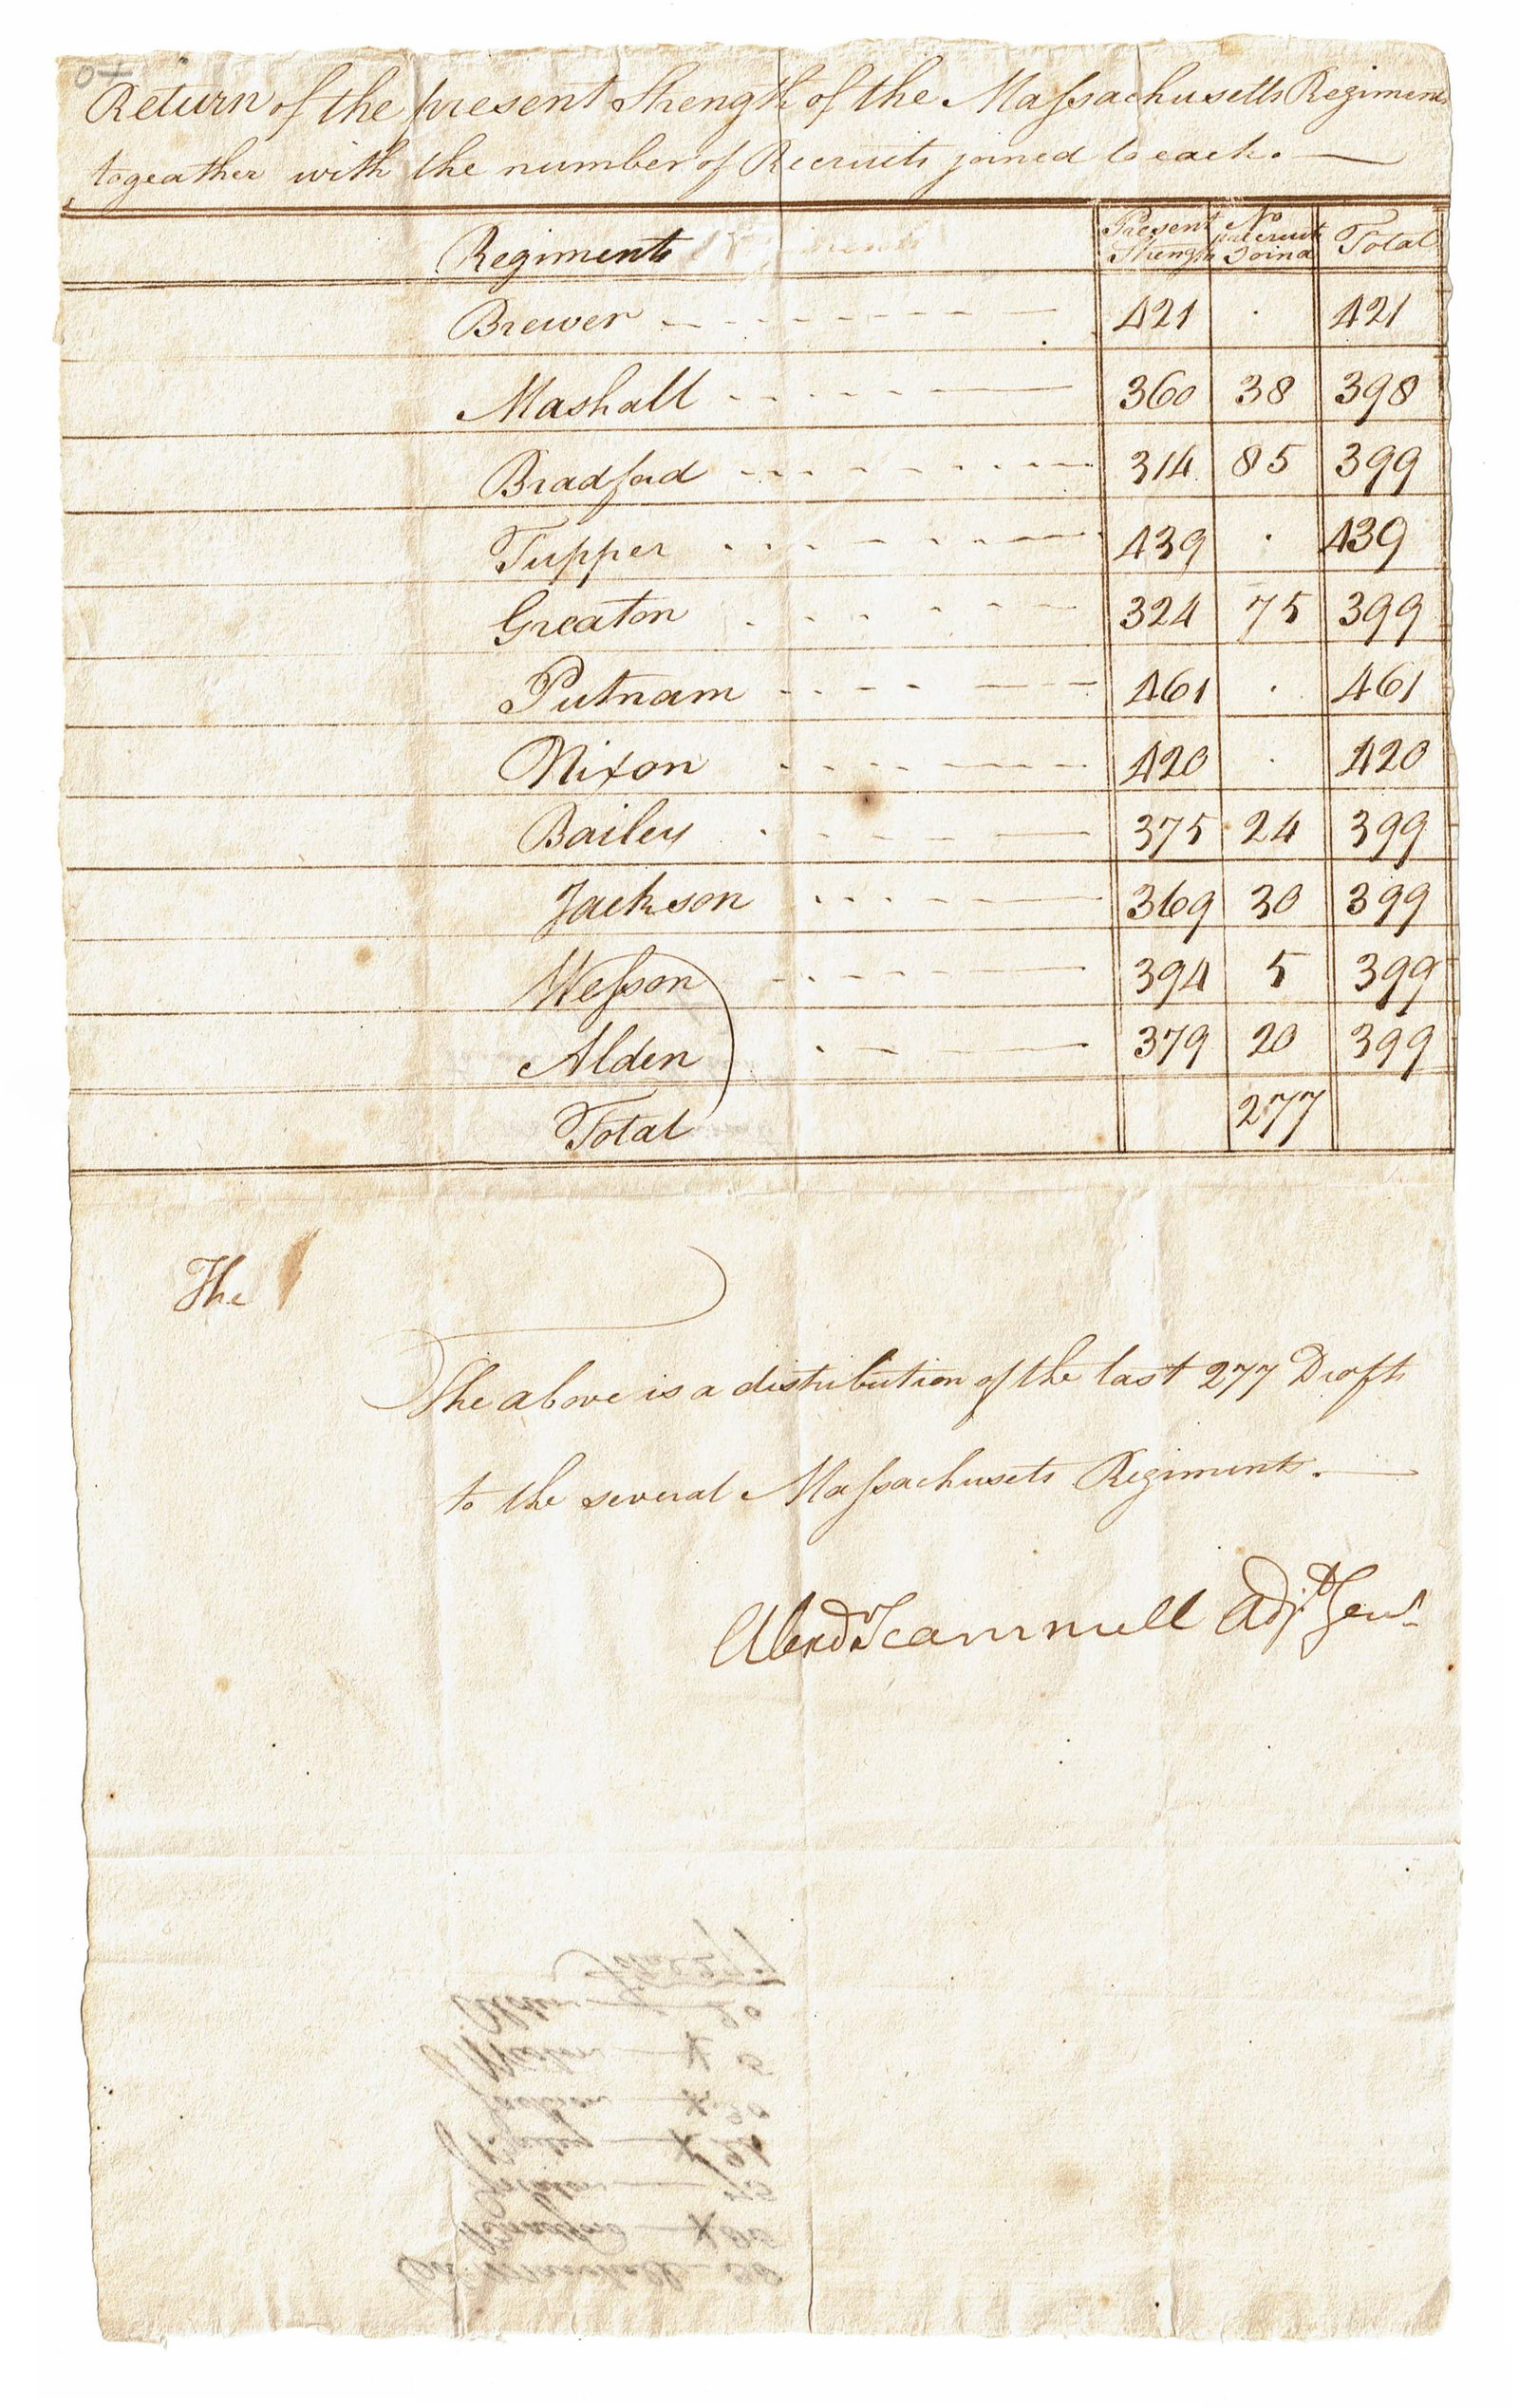 Return of the present Strength of the Massachusetts Regiments
togeather with the number of Recruits joined to each. —
Regiments Present Strength No Recruits Joind Total
Brewer 421 . 421
Mashall 360 38 398
Bradford 314 85 399
Tupper 439 . 439
Greaton 324 75 399
Putnam 461 . 461
Nixon 420 . 420
Bailey 375 24 399
Jackson 369 30 399
Wesson 394 5 399
Alden 379 20 399
Total 277
The
The above is a distribution of the last 277 Drafts
to the several Massachusets Regiments. —
Alexdr Scammell Adjt Genl
Total 277
Alden 20
Wesson x 5
Jackson x 30
Bailey x 24
Greaton 75
Bradford x 85
Col Marshall 38